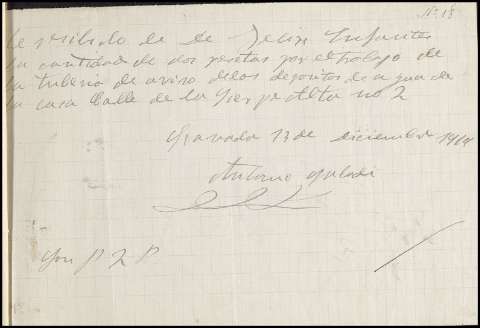 Nº 18
He recibido de Dn Felix Infantes
la cantidad de dos pesetas por el trabajo de
la tuberia de aviso delos depositos de agua de
la casa Calle de la Sierpe Alta no 2
Granada 13 de diciembre 1914
Antonio
Son P 2 P